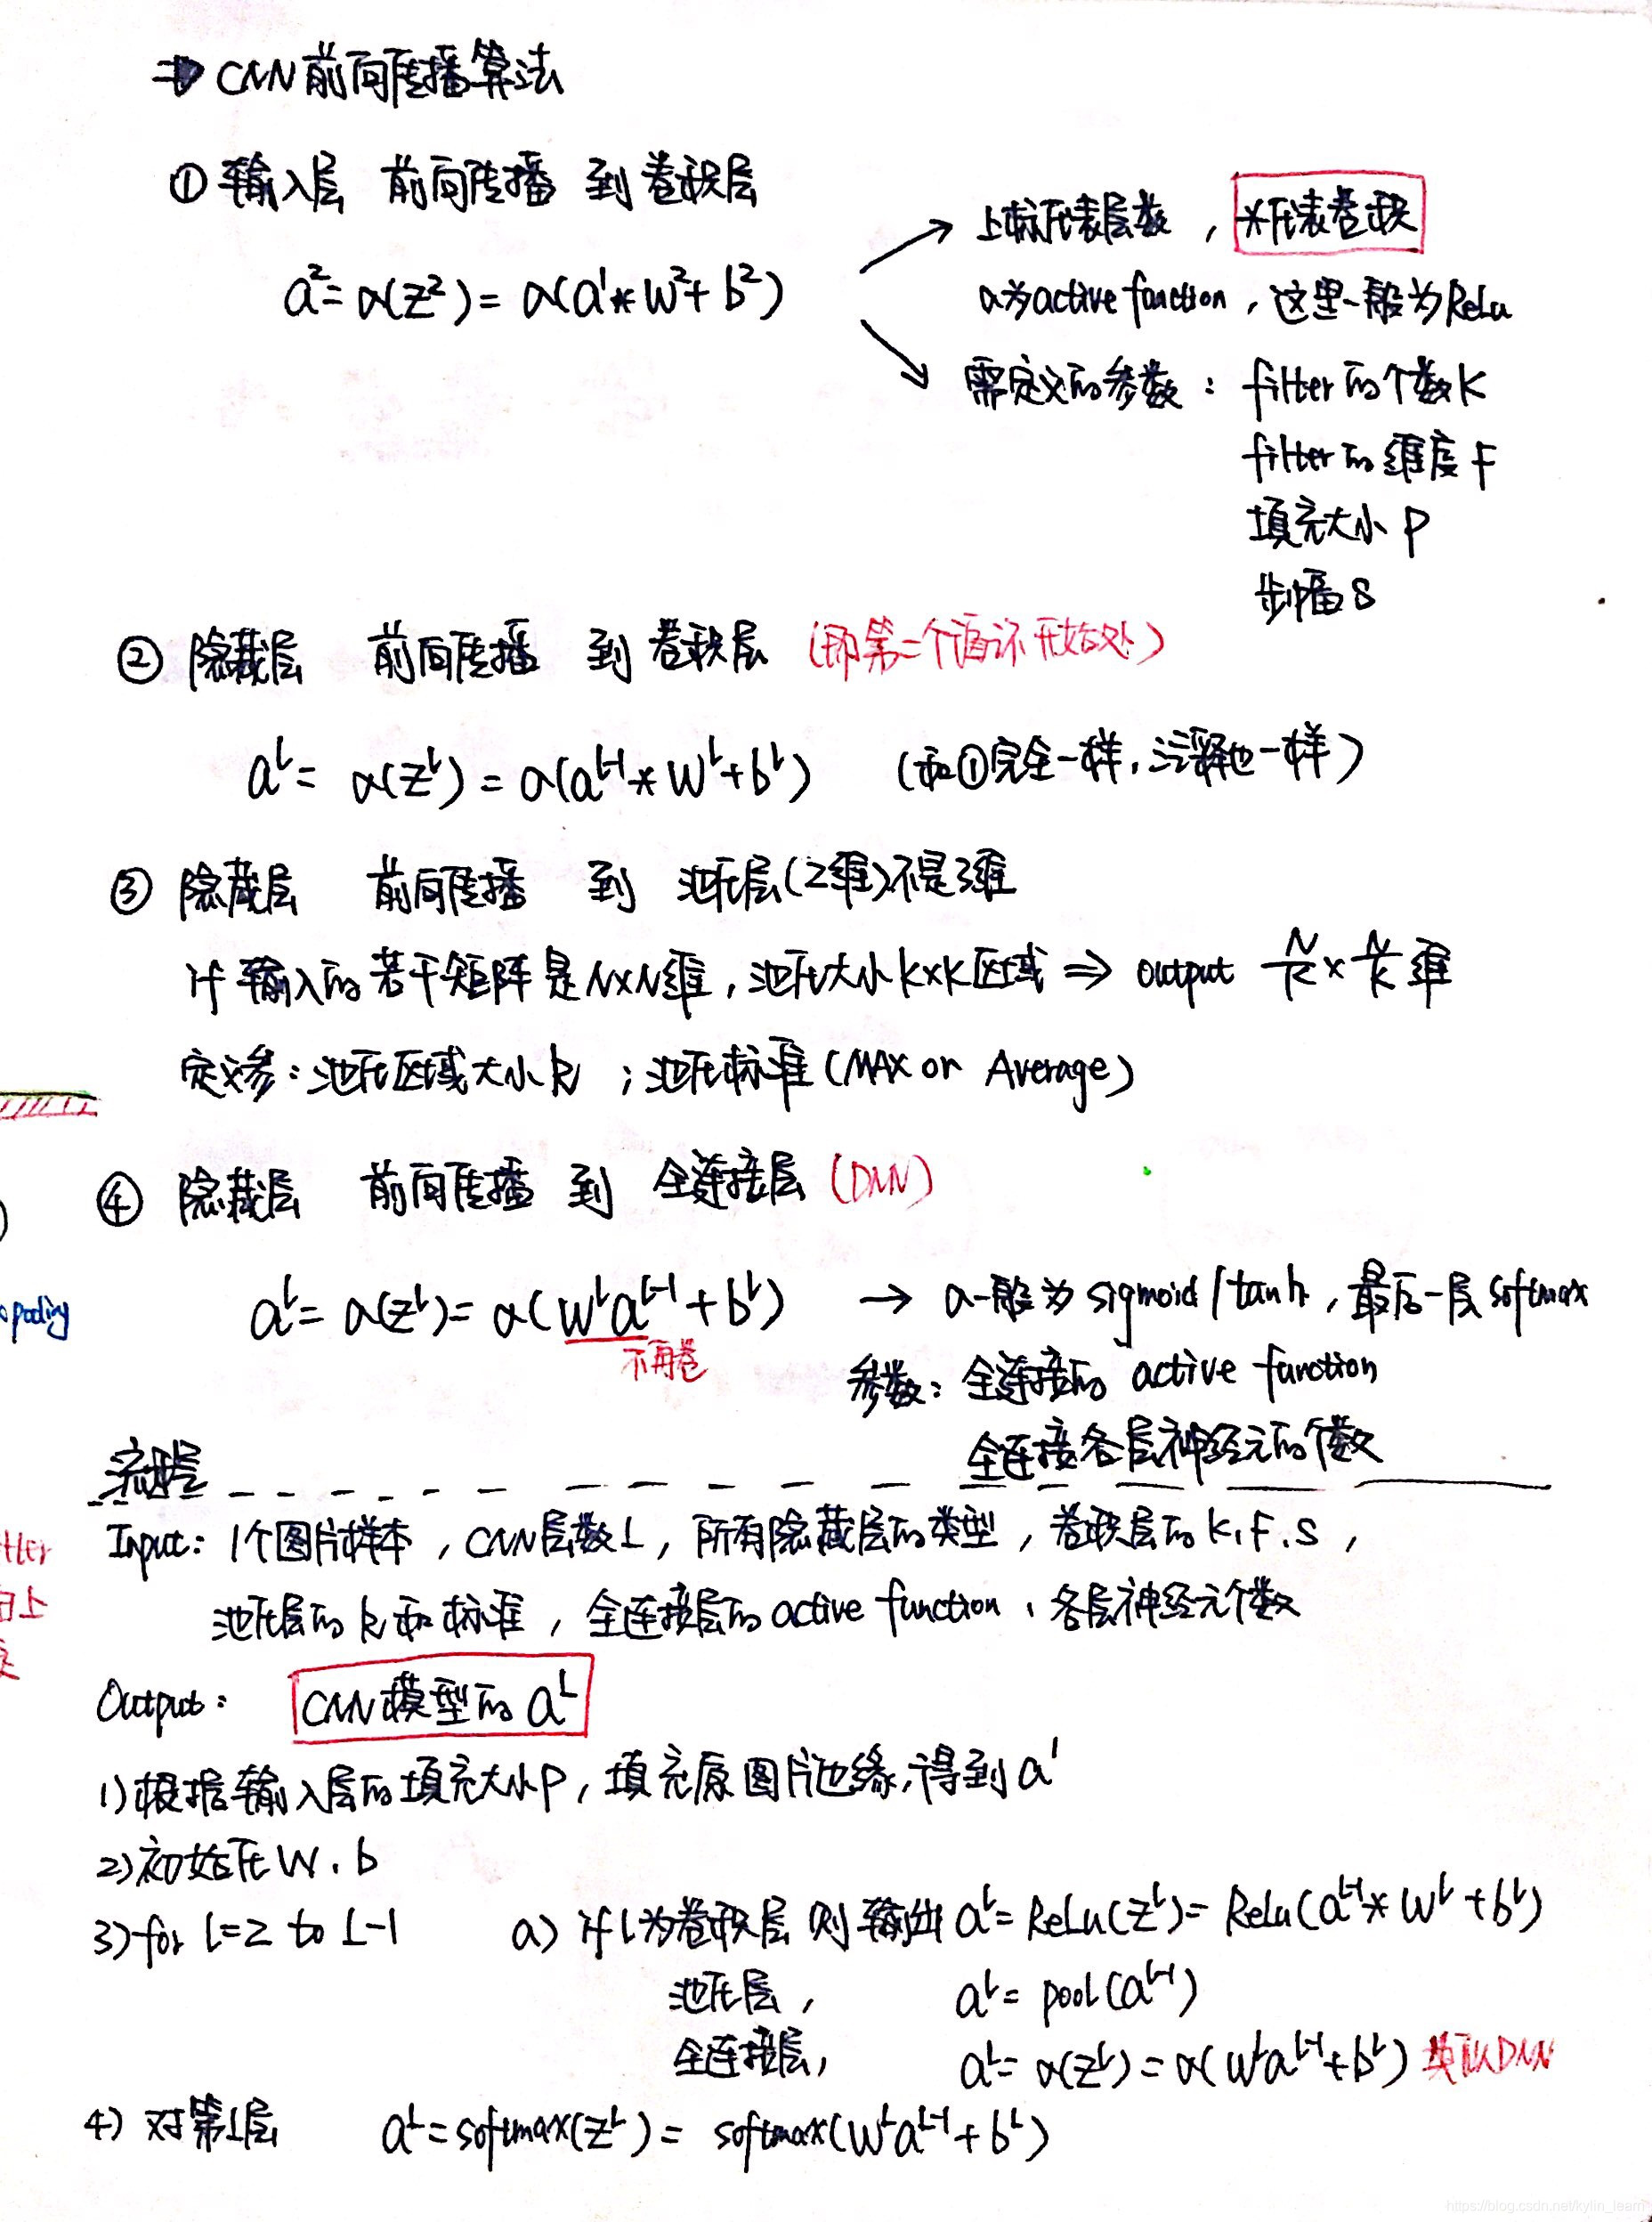 ⇒ CNN前向传播算法
① 输入层 前向传播 到 卷积层
a² = α(z²) = α(a¹ * W² + b²)
上标代表层数，*代表卷积
α为active function，这里一般为ReLu
需定义的参数：filter的个数K
filter的维度F
填充大小P
步幅S
② 隐藏层 前向传播 到 卷积层 (即第二个循环开始处)
aˡ = α(zˡ) = α(aˡ⁻¹ * Wˡ + bˡ) (和①完全一样，注释也一样)
③ 隐藏层 前向传播 到 池化层(2维)不是3维
if 输入的若干矩阵是N×N维，池化大小k×k区域 ⇒ output N/k × N/k 维
定义参：池化区域大小k；池化标准(MAX or Average)
④ 隐藏层 前向传播 到 全连接层 (DNN)
aˡ = α(zˡ) = α(Wˡaˡ⁻¹ + bˡ) → α一般为sigmoid/tanh，最后一层softmax
不再卷
参数：全连接的 active function
全连接各层神经元的个数
流程
Input: 1个图片样本，CNN层数L，所有隐藏层的类型，卷积层的K,F,S，
池化层的k和标准，全连接层的active function、各层神经元个数
Output: CNN模型的aᴸ
1)根据输入层的填充大小P，填充原图片边缘，得到a¹
2)初始化W、b
3)for l=2 to L-1 a) if l为卷积层 则输出 aˡ = ReLu(zˡ) = ReLu(aˡ⁻¹ * Wˡ + bˡ)
池化层， aˡ = pool(aˡ⁻¹)
全连接层， aˡ = α(zˡ) = α(Wˡaˡ⁻¹ + bˡ) DNN
4) 对第L层 aᴸ = softmax(zᴸ) = softmax(Wᴸaᴸ⁻¹ + bᴸ)
https://blog.csdn.net/kylin_learn